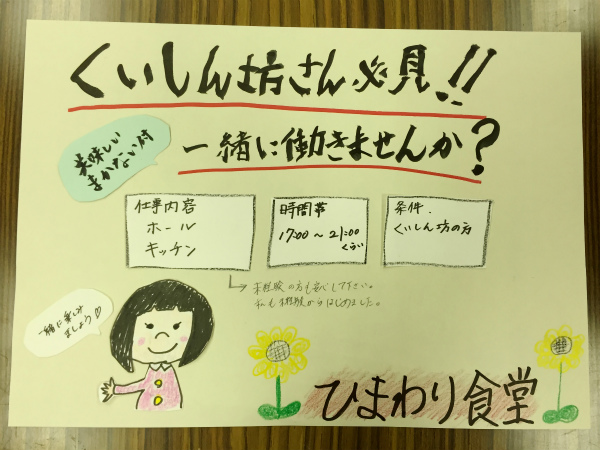 くいしん坊さん必見!!
一緒に働きませんか?
美味しい
まかない付
仕事内容
ホール
キッチン
時間帯
17:00〜21:00
くらい
条件.
くいしん坊の方
未経験の方も安心して下さい。
私も未経験からはじめました。
一緒に楽しみ
ましょう♡
ひまわり食堂